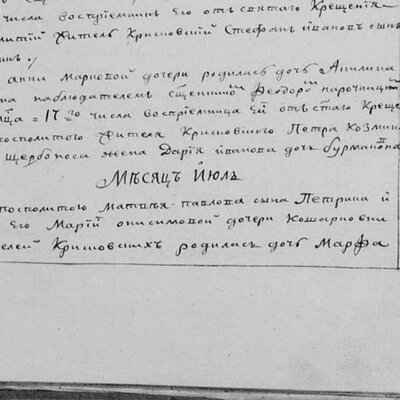 числа воспрiемникъ Его отъ святаго Крещенiя
Житель Крисновскiй Стефанъ ивановъ сынъ
анни Марковой дочери родилась дочь Акилина
на наблюдателемъ Феодоромъ
= 17 го числа воспрiемница Ей отъ стаго Креще
посполитого Жителя Крисновского Петра Козмина
щербоноса жена Дарiя иванова дочь
Мѣсяцъ Июль
посполитого Матвѣя павлова сына Петрика и
Его Марiи онисимовой дочери
телей Крисновскихъ родилась дочь Марфа